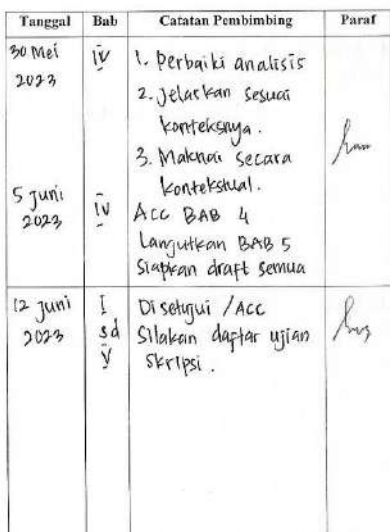 Tanggal Bab Catatan Pembimbing Paraf
30 Mei IV 1. Perbaiki analisis
2023 2. Jelaskan sesuai
konteksnya.
3. Maknai secara
kontekstual.
5 Juni IV Acc BAB 4
2023 Langutkan BAB 5
Siapkan draft semua
12 Juni I Disetujui / ACC
2023 sd Silakan daftar ujian
V Skripsi.